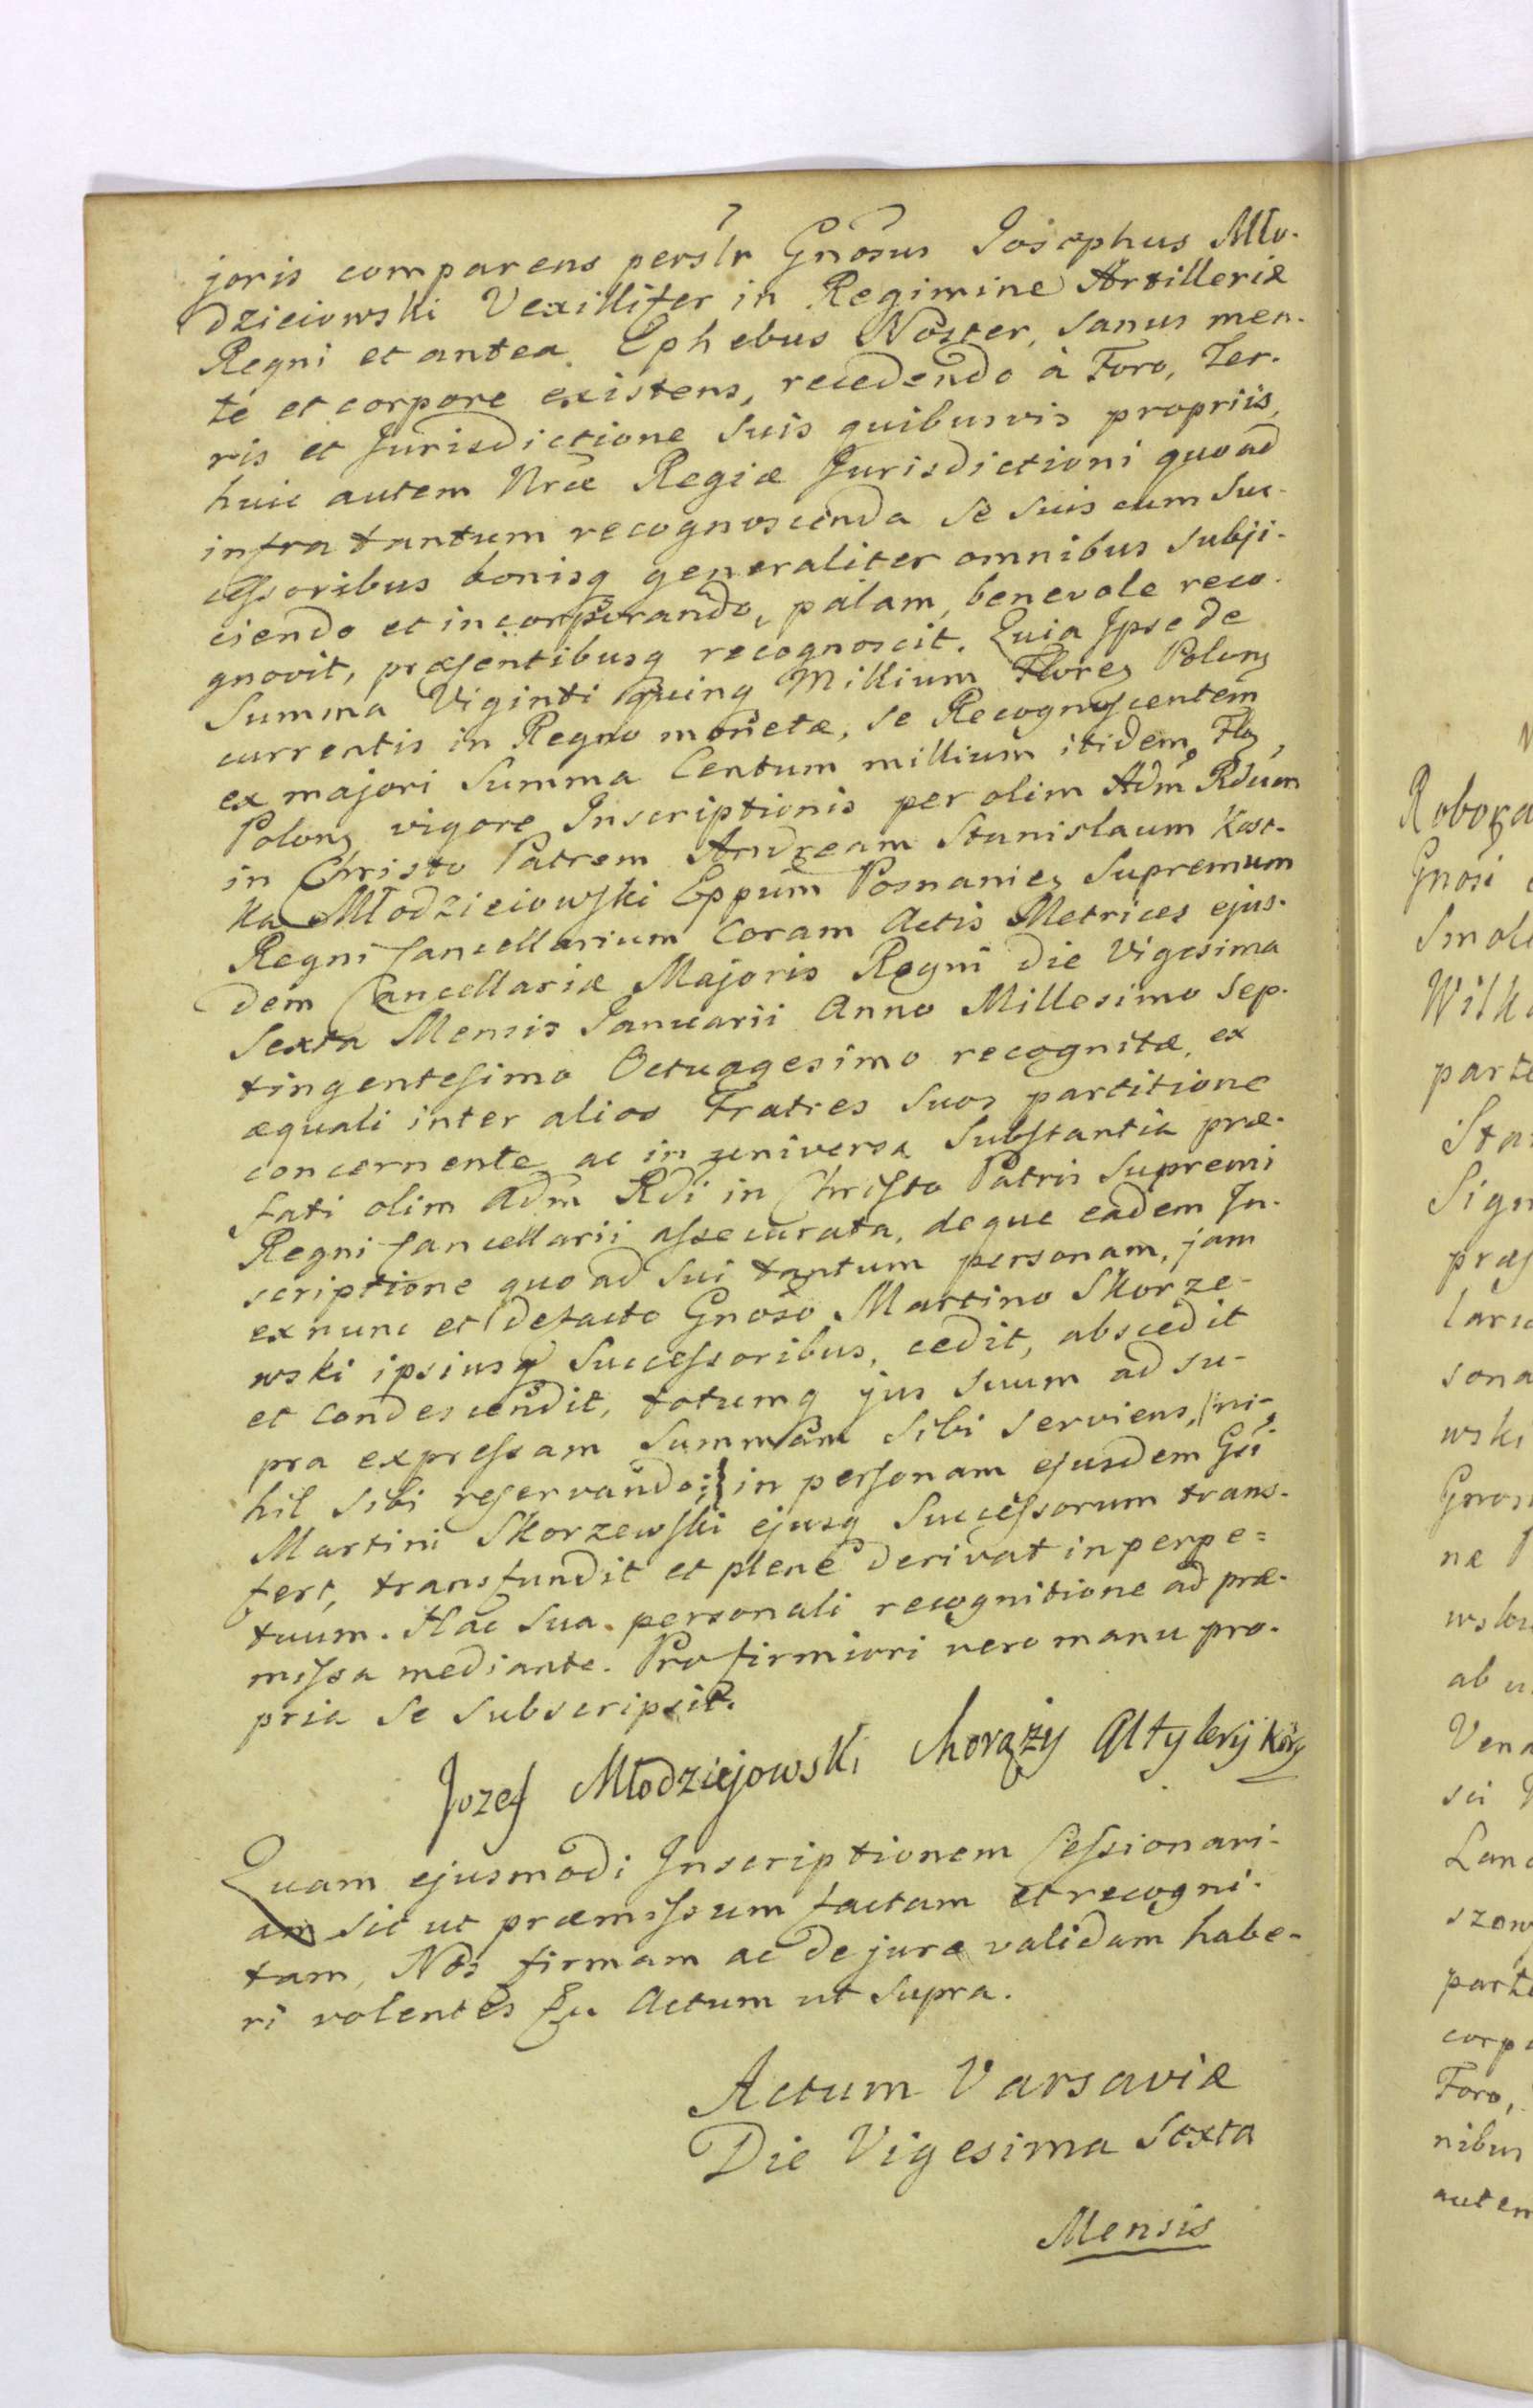 joris comparens persltr Gnosus Josephus Mło-
dzieiowski Vexillifer in Regimine Artilleriæ
Regni et antea Ephebus Noster, sanus men-
te et corpore existens, recedendo à Foro, Ter-
ris et Jurisdictione suis quibusvis propriis,
huic autem Nræ Regiæ Jurisdictioni quoad
infra tantum recognoscenda se suis cum suc-
cessoribus bonisq generaliter omnibus subji-
ciendo et incorporando, palam, benevole reco-
gnovit, præsentibusq recognoscit. Quia Ipse de
Summa Viginti quinq Millium Floreg Polong
currentis in Regno monetæ, se Recognoscentem
ex majori Summa Centum millium itidem Flog,
Polong vigore Inscriptionis per olim Adm Rdum
in Christo Patrem Andream Stanislaum Kost-
ka Młodzieiowski Eppum Posnanieg Supremum
Regni Cancellarium Coram Actis Metrices ejus-
dem Cancellariæ Majoris Regni Die Vigesima
Sexta Mensis Januarii Anno Millesimo Sep-
tingentesimo Octuagesimo recognitæ, ex
æquali inter alios Fratres suos partitione
concernente ac in universa Substantia præ-
fati olim Adm Rdi in Christo Patris Supremi
Regni Cancellarii assecurata, deque eadem In-
scriptione quoad sui tantum personam, jam
exnunc et defacto Gnoso Martino Skorze-
wski ipsiusq Successoribus, cedit, abscedit
et condescendit, totumq jus suum ad su-
pra expressam Summam sibi serviens, /:ni-
hil sibi reservando:/ in personam ejusdem Gsi
Martini Skorzewski ejusq Successorum trans-
fert, transfundit et plene derivat in perpe-
tuum. Hac sua personali recognitione ad præ-
missa mediante. Pro firmiori vero manu pro-
pria se subscripsit.
Jozef Młodziejowski Chorąży Altylerij Korg
Quam ejusmodi Inscriptionem Cessionari-
am sic ut præmissum factam et recogni-
tam, Nos firmam ac de jure validam habe-
ri volentes Actum ut supra.
Actum Varsaviæ
Die Vigesima Sexta
Mensis
Gnosi
Smol
Wilk
parte
Sta
Sign
præs
sona
wski
næ
Vena
Foro,
nibus
autem